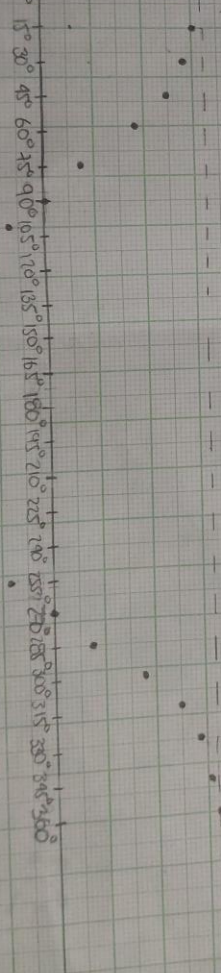 15° 30° 45° 60° 75° 90° 105° 120° 135° 150° 165° 180° 195° 210° 225° 240° 255° 270° 285° 300° 315° 330° 345° 360°